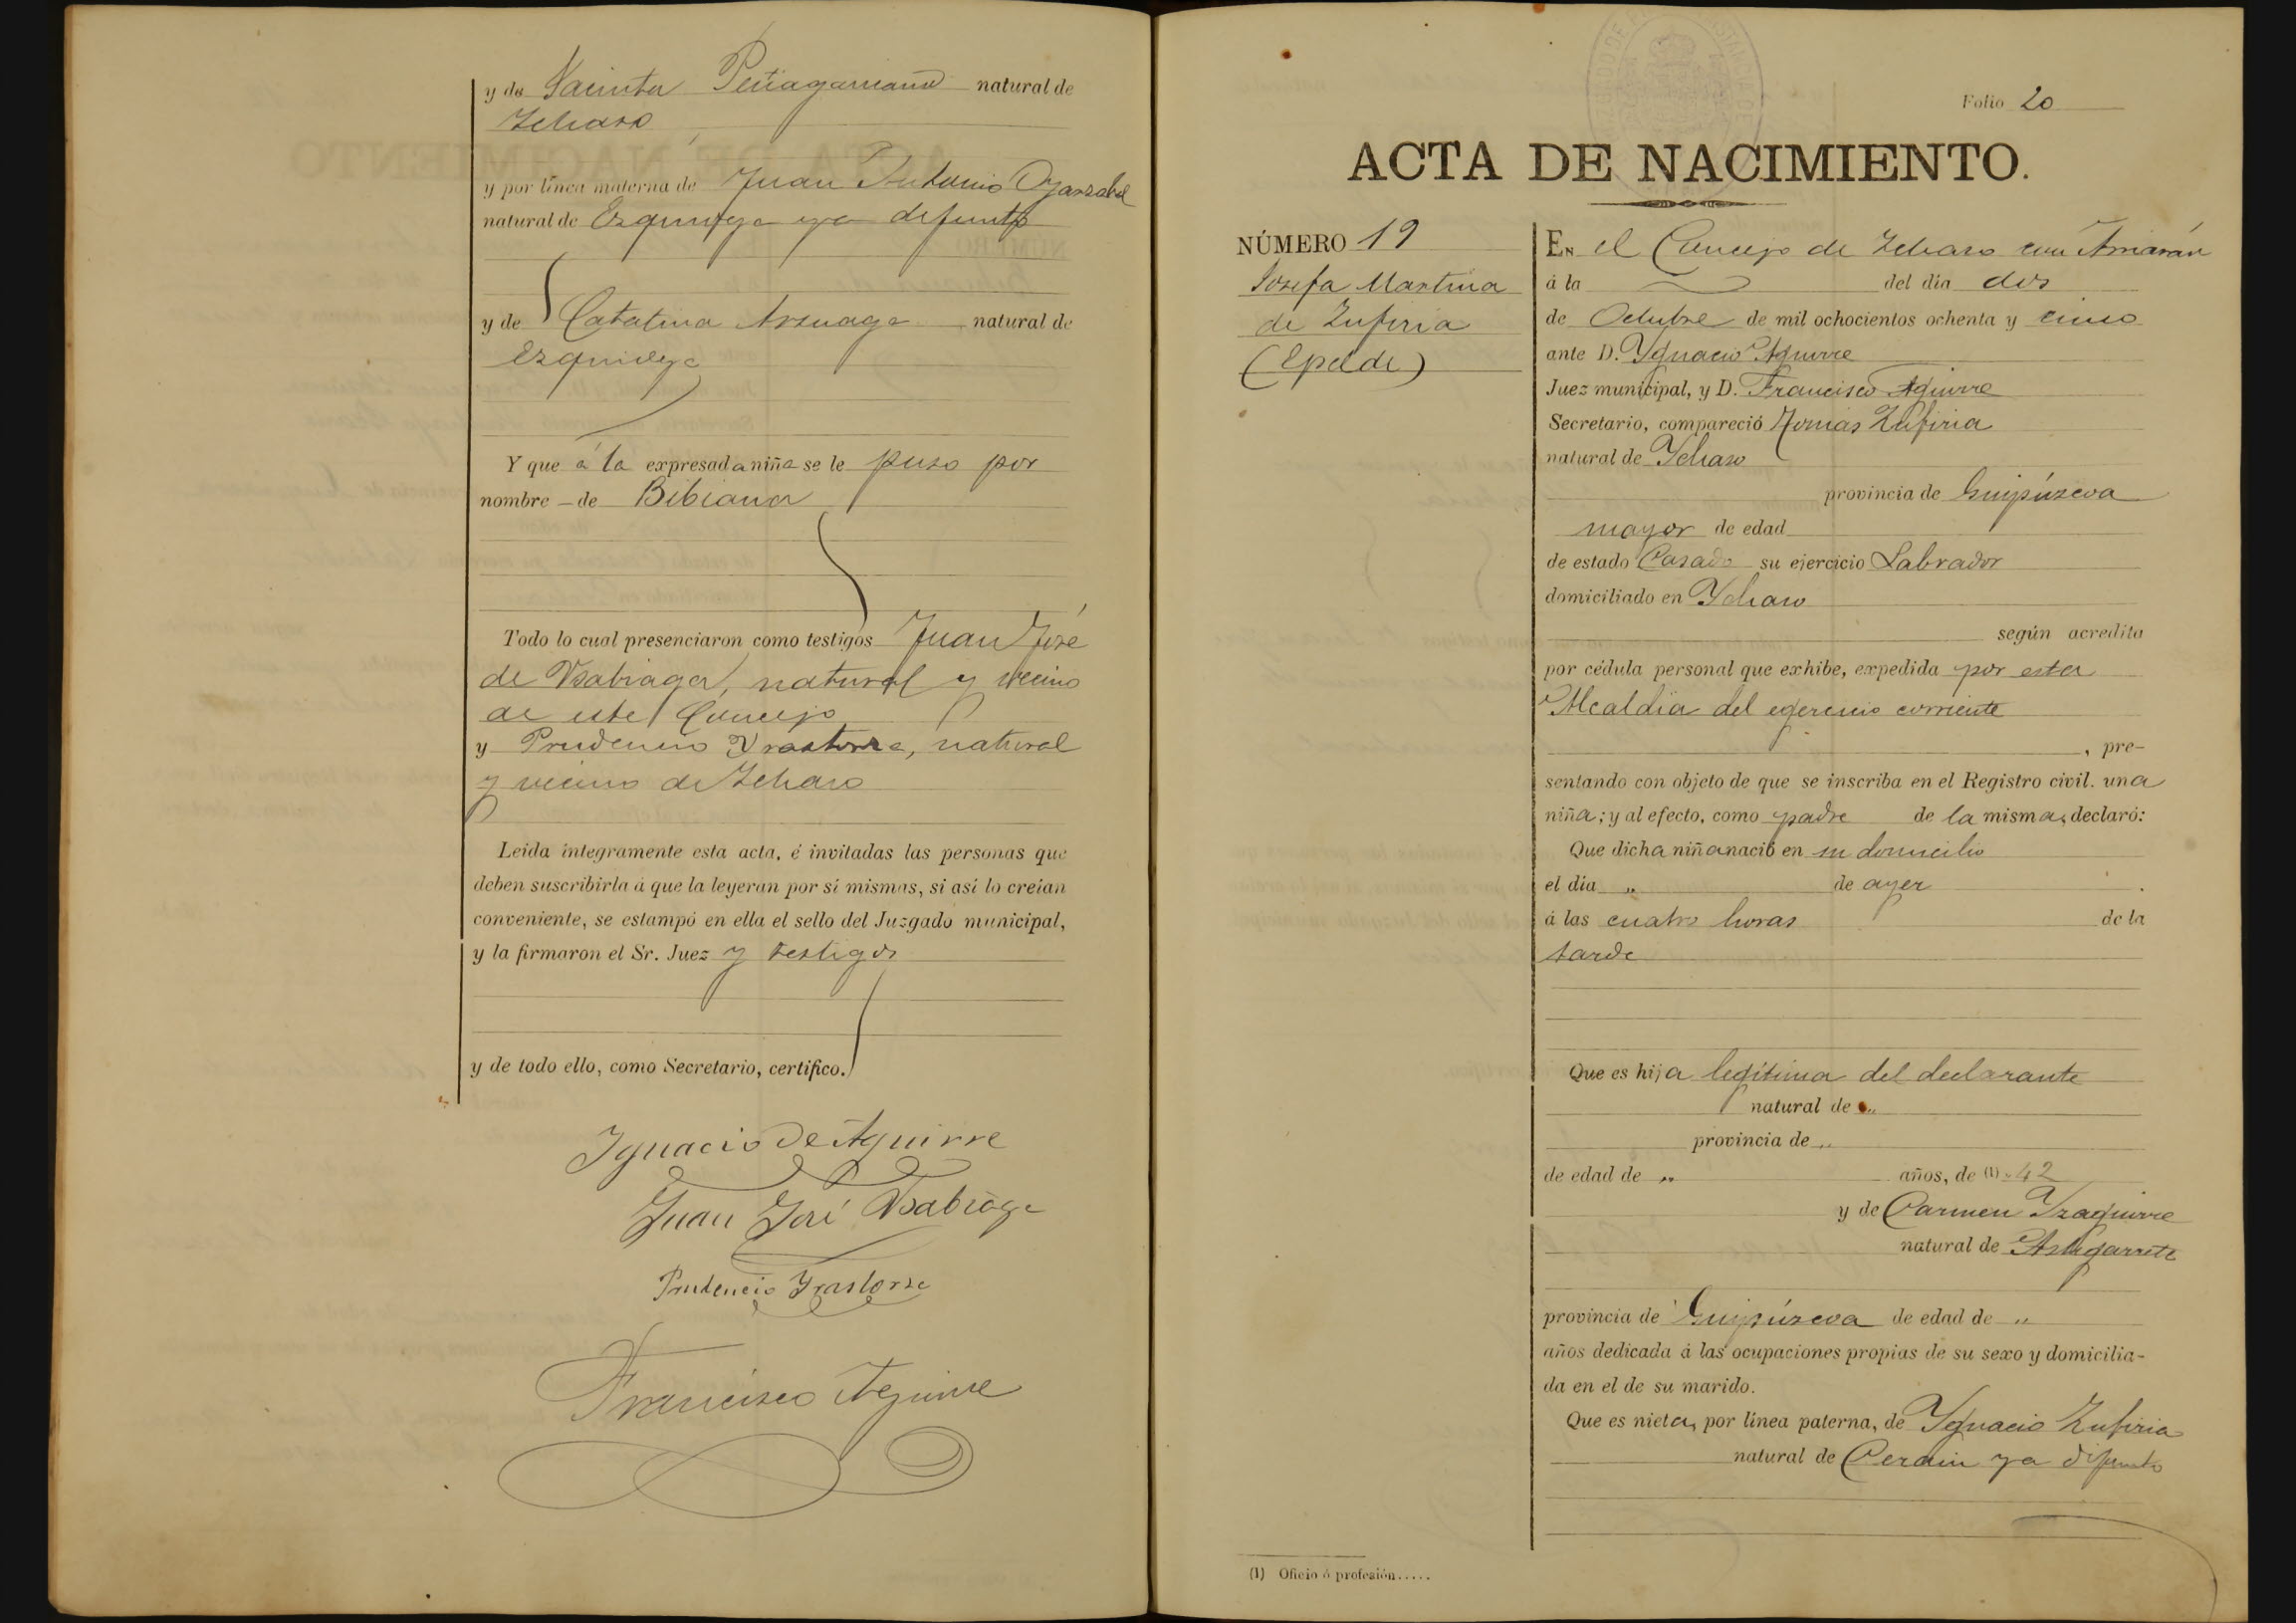 y de Jacinta Peñagaricano natural de
Ichaso
y por línea materna de Juan Antonio Oyarzabal
natural de Ezquioga ya difunto
y de Catalina Arsuaga natural de
Ezquioga
Y que á la expresada niña se le puso por
nombre - de Bibiana
Todo lo cual presenciaron como testigos Juan José
de Usabiaga, natural y vecino
de este Concejo
y Prudencio Yrastorza, natural
y vecino de Ichaso
Leida íntegramente esta acta, é invitadas las personas que
deben suscribirla á que la leyeran por sí mismas, si así lo creían
conveniente, se estampó en ella el sello del Juzgado municipal,
y la firmaron el Sr. Juez y testigos
y de todo ello, como Secretario, certifico.
Ygnacio de Aguirre
Juan José Usabiaga
Prudencio Yrastorza
Francisco Aguirre
Folio 20
ACTA DE NACIMIENTO.
NÚMERO 19
Josefa Martina
de Zufiria
(Epelde)
EN el Concejo de Ichaso con Arriarán
á la del dia dos
de Octubre de mil ochocientos ochenta y cinco
ante D. Ygnacio Aguirre
Juez municipal, y D. Francisco Aguirre
Secretario, compareció Tomás Zufiria
natural de Ychaso
provincia de Guipúzcoa
mayor de edad
de estado Casado su ejercicio Labrador
domiciliado en Ychaso
según acredita
por cédula personal que exhibe, expedida por esta
Alcaldía del egercicio corriente
, pre-
sentando con objeto de que se inscriba en el Registro civil. una
niña; y al efecto, como padre de la misma, declaró:
Que dicha niña nació en su domicilio
el dia " de ayer
á las cuatro horas de la
tarde
Que es hija legítima del declarante
natural de "
provincia de "
de edad de " años, de (1) 42
y de Carmen Yzaguirre
natural de Astigarreta
provincia de Guipúzcoa de edad de "
años dedicada á las ocupaciones propias de su sexo y domicilia-
da en el de su marido.
Que es nieta, por línea paterna, de Ygnacio Zufiria
natural de Cerain ya difunto
(1) Oficio ó profesión.....